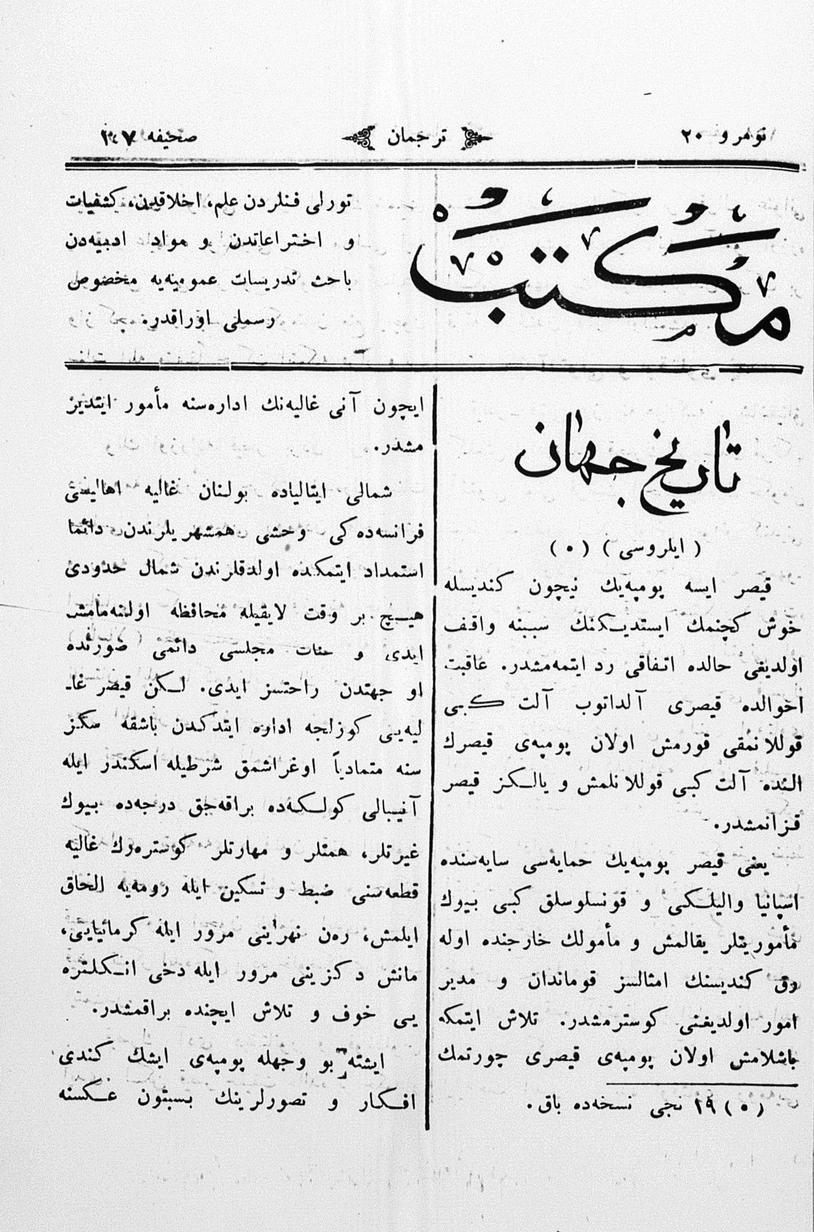 نومرو ٢٠
ترجمان
صحیفه ١٤٧
مكتب
تورلی فنلردن علم، اخلاقدن، كشفیات
و اختراعاتدن و مواد ادبیه‌دن
باحث تدریسات عمومیه‌یه مخصوص
رسملی اوراقدر.
تاریخ جهان
( ایلروسی ) ( ٥ )
قیصر ایسه پومپه‌یك نیچون كندیسله
خوش كچنمك ایستدیكنك سببنه واقف
اولدیغی حالده اتفاقی رد ایتمه‌مشدر. عاقبت
احوالده قیصری آلداتوب آلت كبی
قوللانمقی قورمش اولان پومپه‌ی قیصرك
النده آلت كبی قوللانلمش و یالكز قیصر
قزانمشدر.
یعنی قیصر پومپه‌یك حمایه‌سی سایه‌سنده
اسپانیا والیلكی و قونسلوسلق كبی بیوك
مأموریتلر یقالمش و مأمولك خارجنده اوله
رق كندیسنك امثالسز قوماندان و مدیر
امور اولدیغنی كوسترمشدر. تلاش ایتمكه
باشلامش اولان پومپه‌ی قیصری چورتمك
( ٥ ) ١٩ نجی نسخه‌ده باق.
ایچون آنی غالیه‌نك اداره‌سنه مأمور ایتدیر
مشدر.
شمالی ایتالیاده بولنان غالیه اهالیسی
فرانسه‌ده‌كی وحشی همشهریلرندن دائما
استمداد ایتمكده اولدقلرندن شمال حدودی
هیچ بر وقت لایقیله محافظه اولنه‌مامش
ایدی و مجلسی دائمی صورتده
او جهتدن راحتسز ایدی. لكن قیصر غا-
لیه‌یی كوزلجه اداره ایتدكدن باشقه سكز
سنه متمادیاً اوغراشمق شرطیله اسكندر ایله
آنیبالی كولكه‌ده براقه‌جق درجه‌ده بیوك
غیرتلر، همتلر و مهارتلر كوستره‌رك غالیه
قطعه‌سنی ضبط و تسكین ایله رومه‌یه الحاق
ایلمش، ره‌ن نهراینی مرور ایله كرمانیایی،
مانش دكزینی مرور ایله دخی انكلتره
یی خوف و تلاش ایچنده براقمشدر.
ایشته بو وجهله پومپه‌ی ایشك كندی
افكار و تصورلرینك بسبتون عكسنه